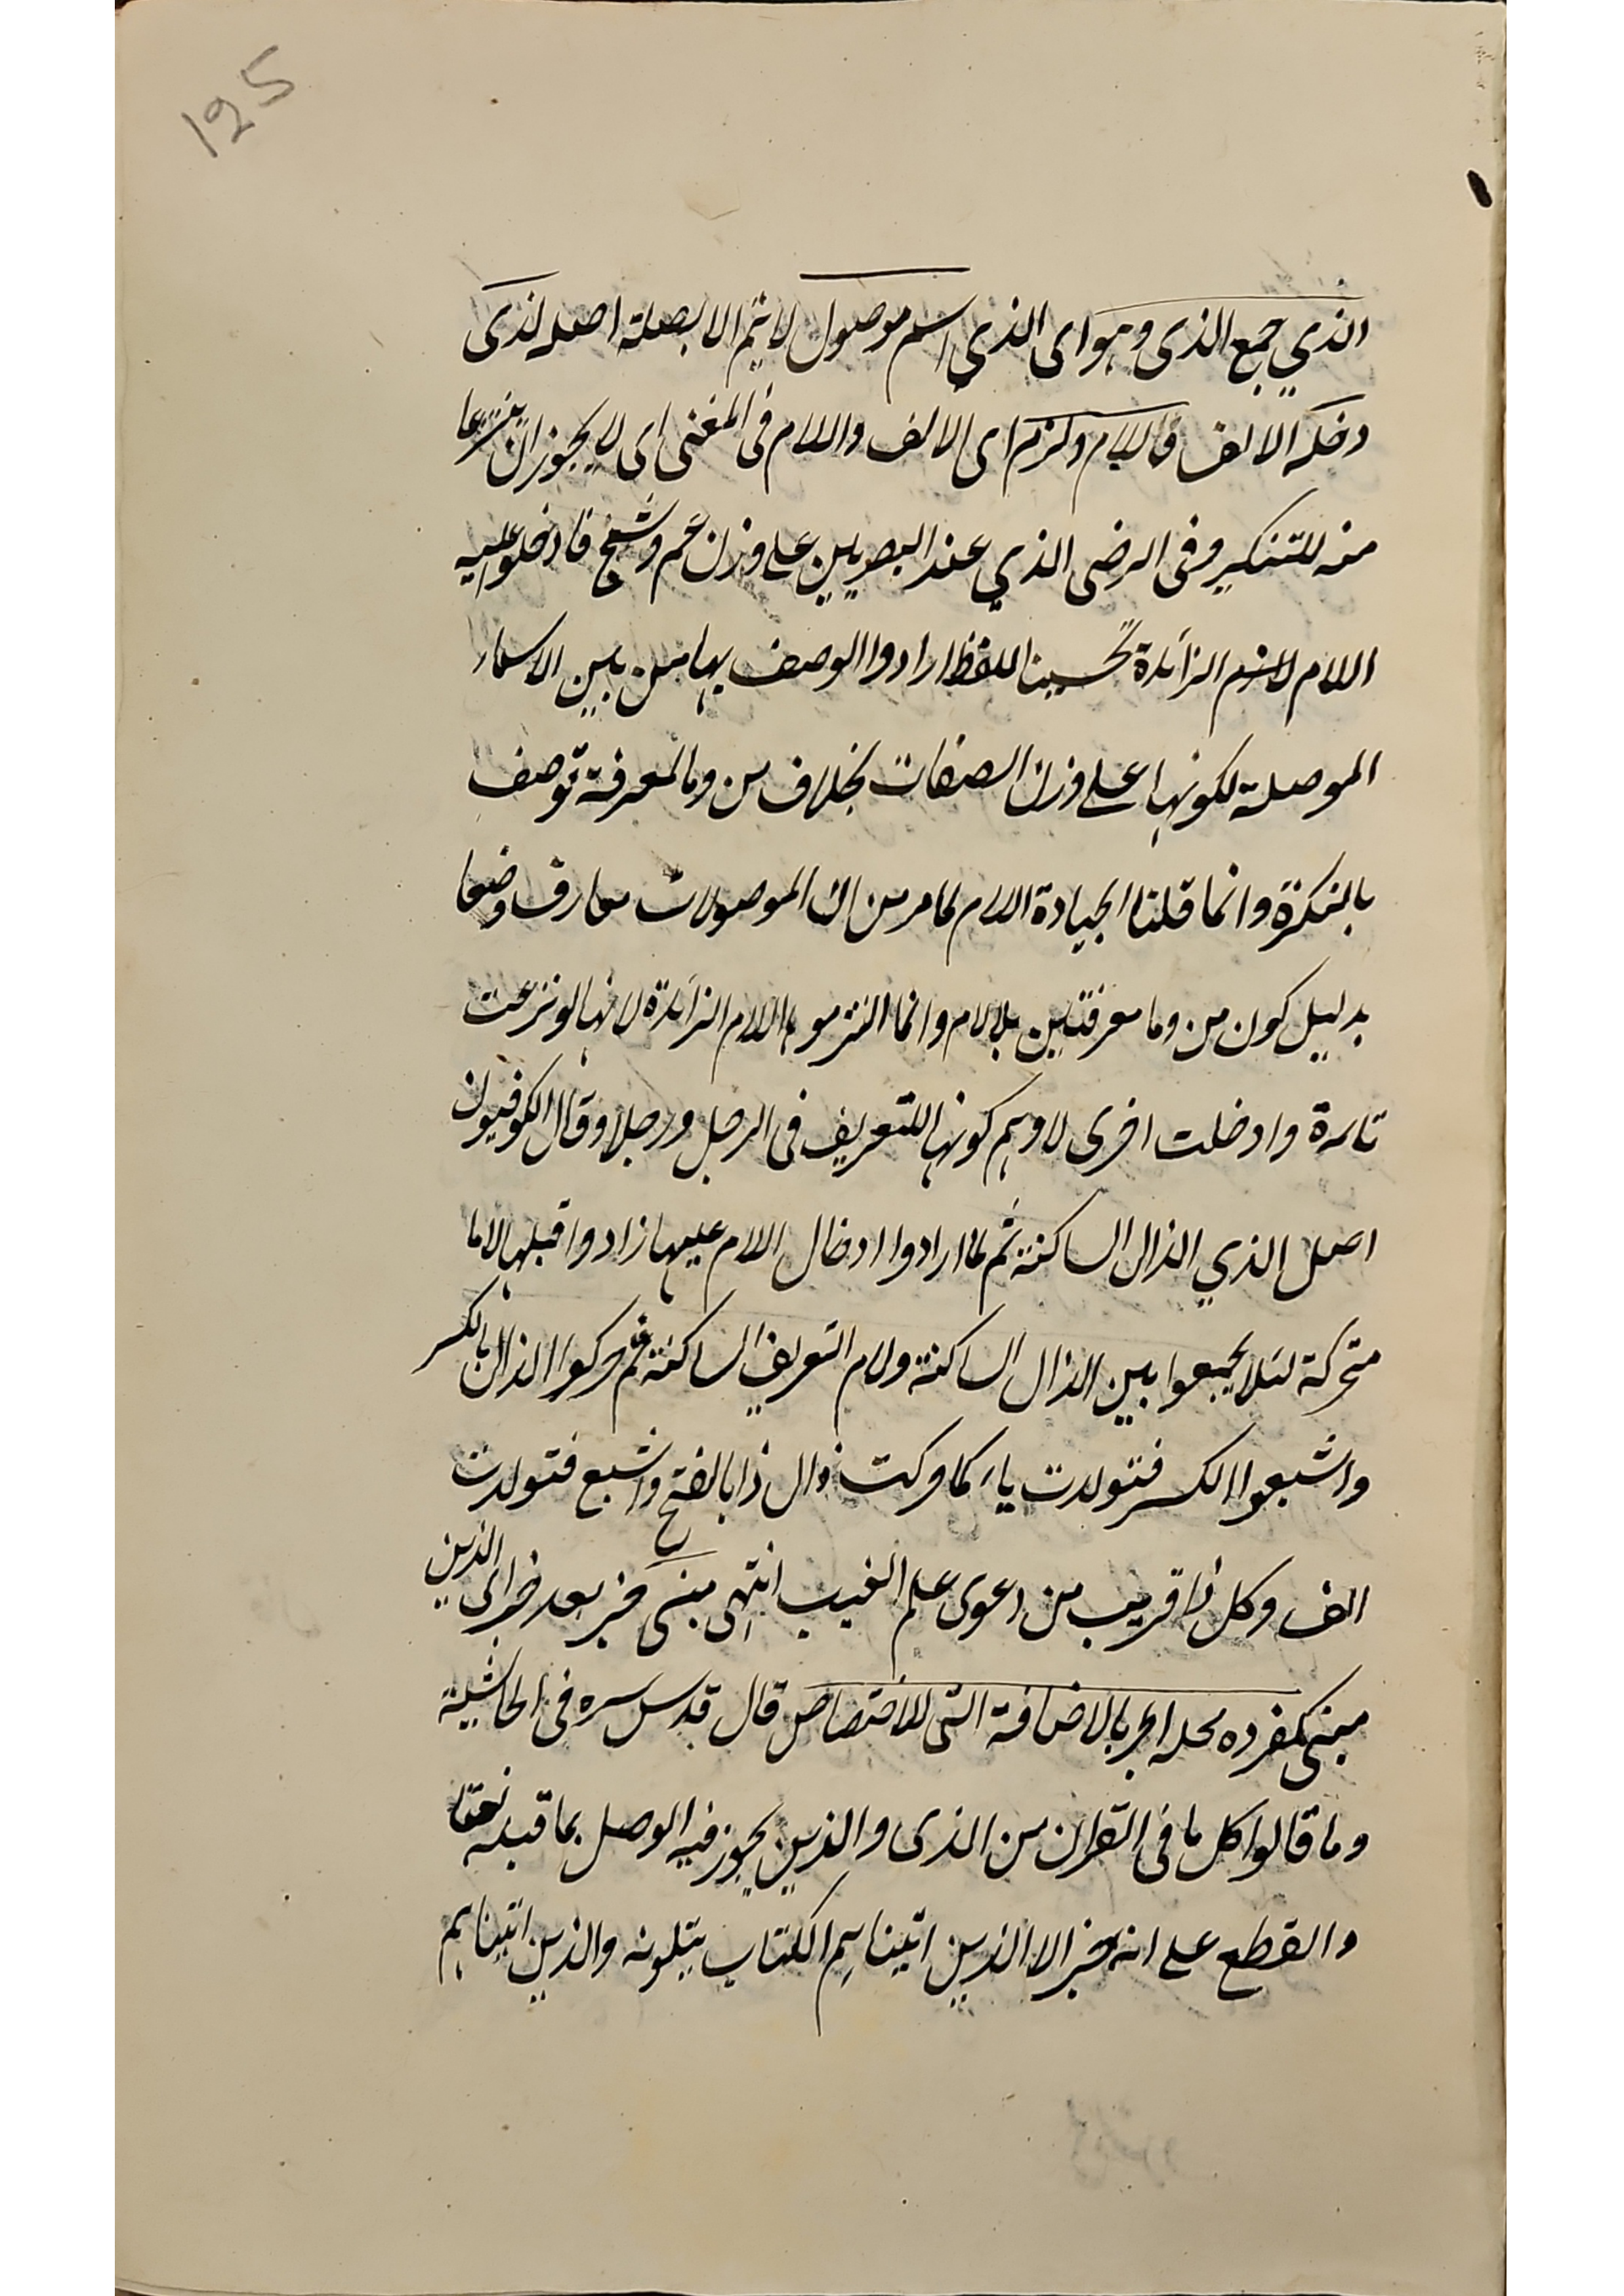 125
الذي جمع الذى وهو اى الذي اسم موصول لا يتم الا بصلة اصله لذى
دخله الالف واللام ولزم اى الالف واللام فى المغنى اى لا يجوز ان ينزعا
منه للتنكير وفى الرضى الذي عند البصريين على وزن عم وشج فادخلوا عليه
اللام الزائدة تحسينا للفظ ارادوا الوصف بها من بين الاسماء
الموصلة لكونها على وزن الصفات بخلاف من وما لمعرفة توصف
بالنكرة وانما قلنا اللام لما مر من ان الموصولات معارف وضعا
بدليل كون من وما معرفتين بلا لام وانما التزموا اللام الزائدة لانها لو نزعت
تارة وادخلت اخرى لاوهم كونها للتعريف فى الرجل ورجلا وقال الكوفيون
اصل الذي الذال الساكنة ثم لما ارادوا ادخال اللام عليها زادوا قبلها لاما
متحركة لئلا يجمعوا بين الذال الساكنة ولام التعريف الساكنة ثم حركوا الذال بالكسر
واشبعوا الكسر فتولدت ياء كما حركت ذال ذا بالفتح واشبع فتولدت
الف وكل ذا قريب من دعوى علم الغيب انتهى مبنى خبر بعد خبر اى الذين
مبنى كمفرده محله الجر بالاضافة التى للاختصاص قال قدس سره فى الحاشية
وما قالوا كل ما فى القران من الذى والذين يجوز فيه الوصل بما قبله نعتا
والقطع على انه خبر الا الذين اتيناهم الكتاب يتلونه والذين اتيناهم